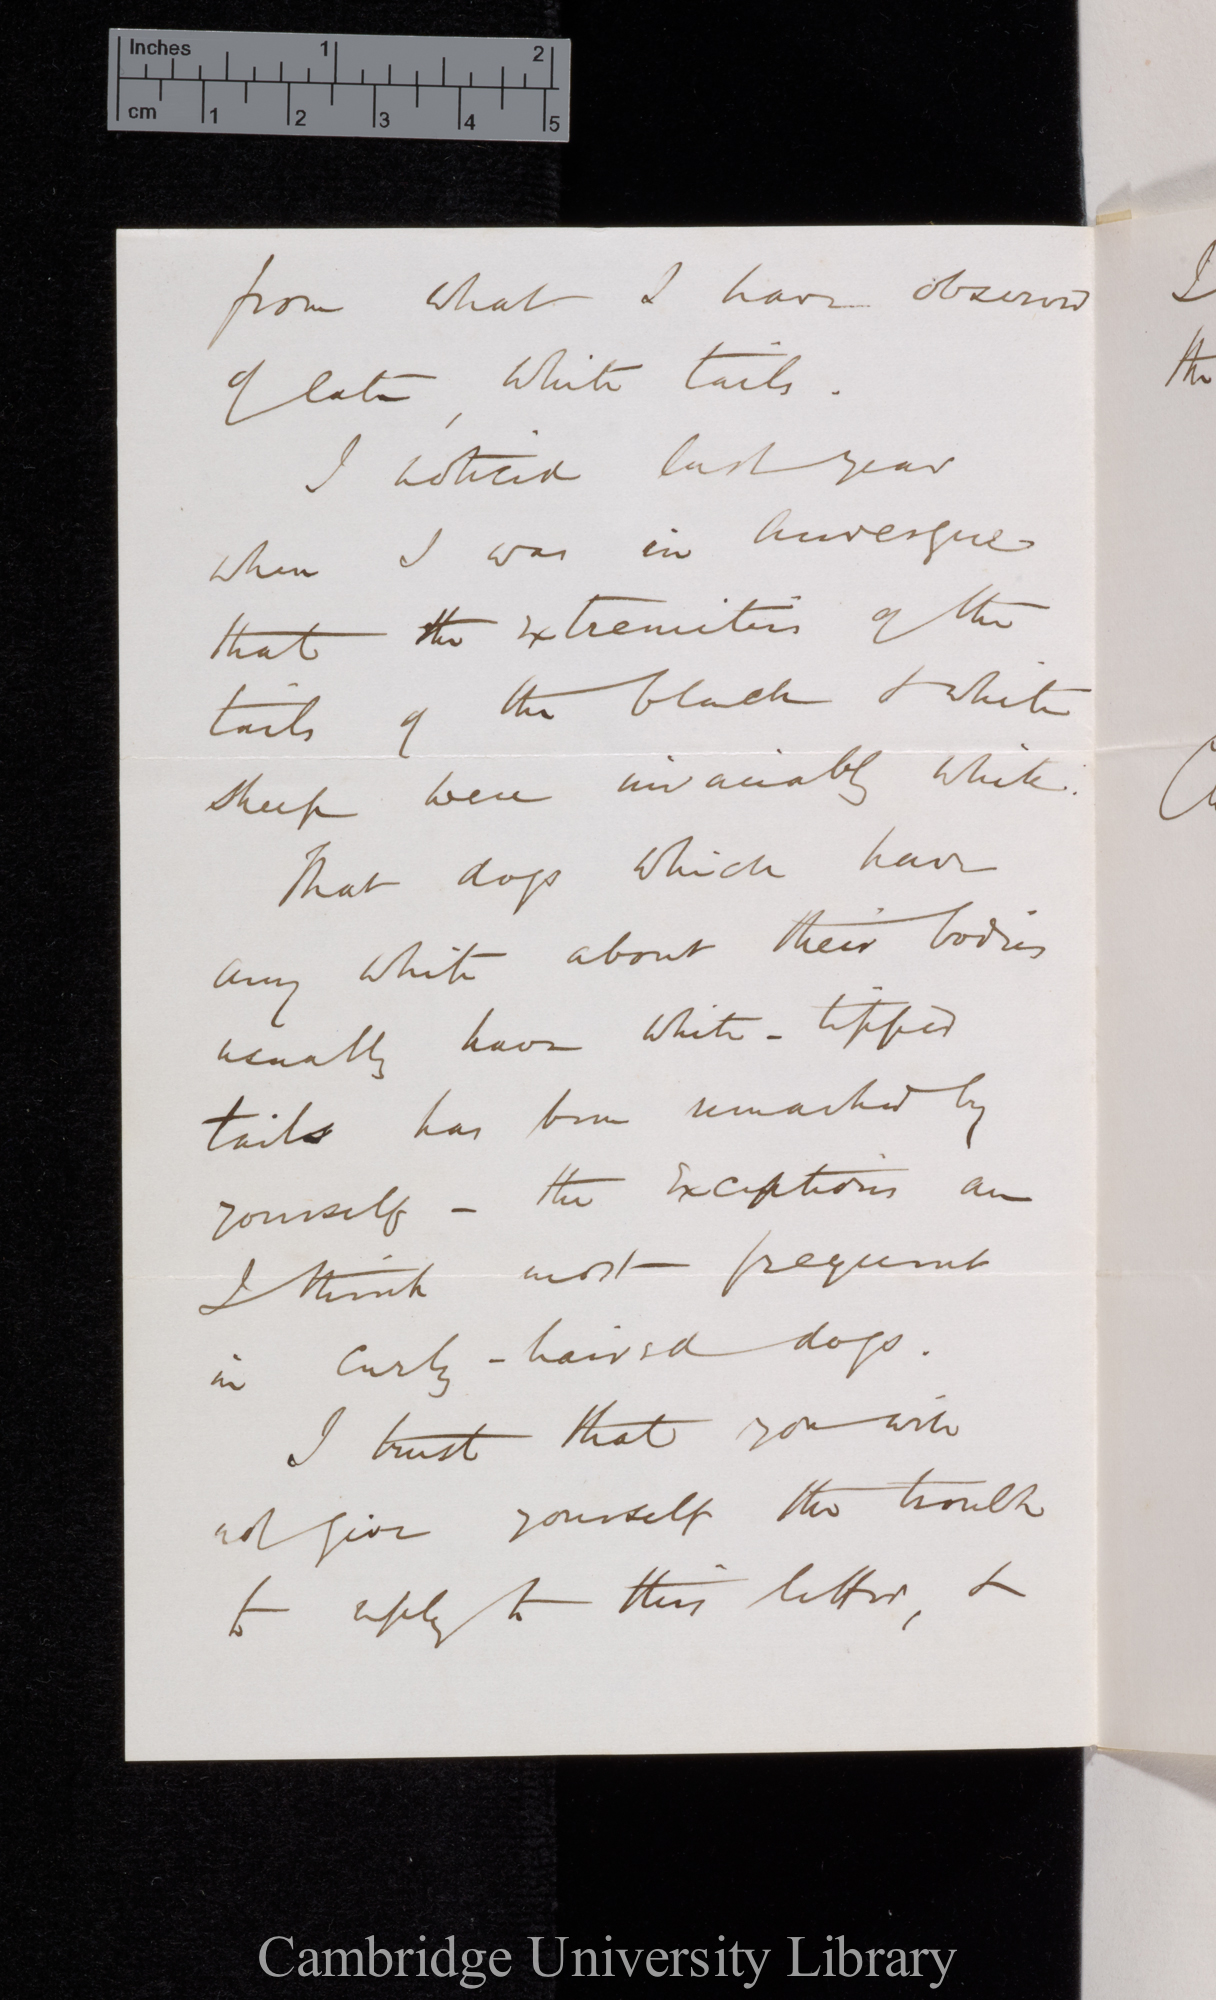 Inches 1 2
cm 1 2 3 4 5
from what I have observed
of late, white tails.
I noticed last year
when I was in Auvergne
that the extremities of the
tails of the black & white
sheep were invariably white.
That dogs which have
any white about their bodies
usually have white-tipped
tails has been remarked by
yourself – the exceptions are
I think most frequent
in curly-haired dogs.
I trust that you will
not give yourself the trouble
to reply to this letter, &
I
the
Cambridge University Library